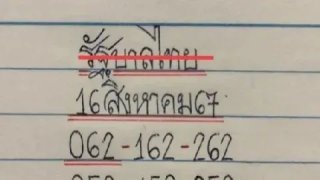 รัฐบาลไทย
16สิงหาคม67
062-162-262